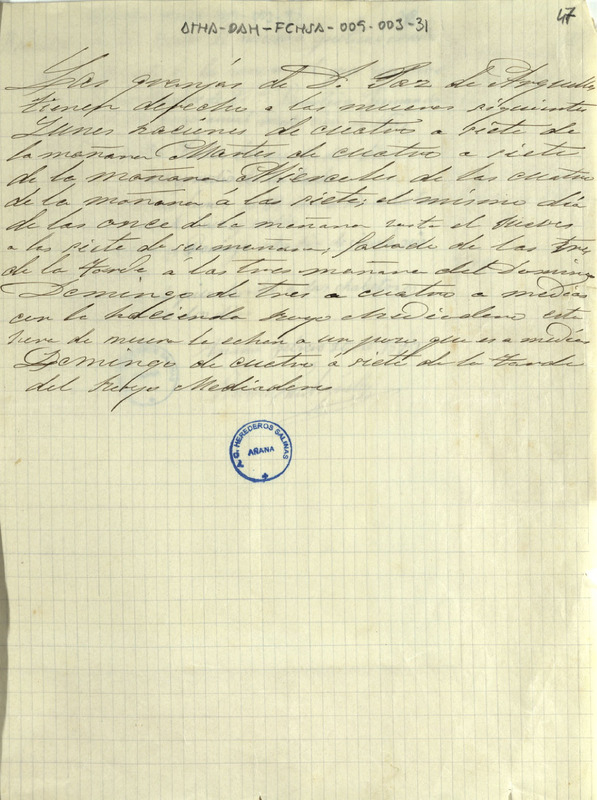 47
ATHA-DAH-FCHSA-005-003-31
Las granjas de D. Paz de Arguelles
tienen derecho a las mueras siguientes
Lunes de cuatro a siete de
la mañana Martes de cuatro a siete
de la mañana Miercoles de las cuatro
de la mañana a las siete; el mismo dia
de las once de la mañana asta el Jueves
a las siete de su mañana; Sabado de las tres
de la tarde á las tres mañana del Domingo
Domingo de tres a cuatro a medias
con la hacienda Royo Mediadero esta
de muera la echan a un pozo que es a medias
Domingo de cuatro á siete de la tarde
del Royo Mediaderos
C. HEREDEROS SALINAS
AÑANA